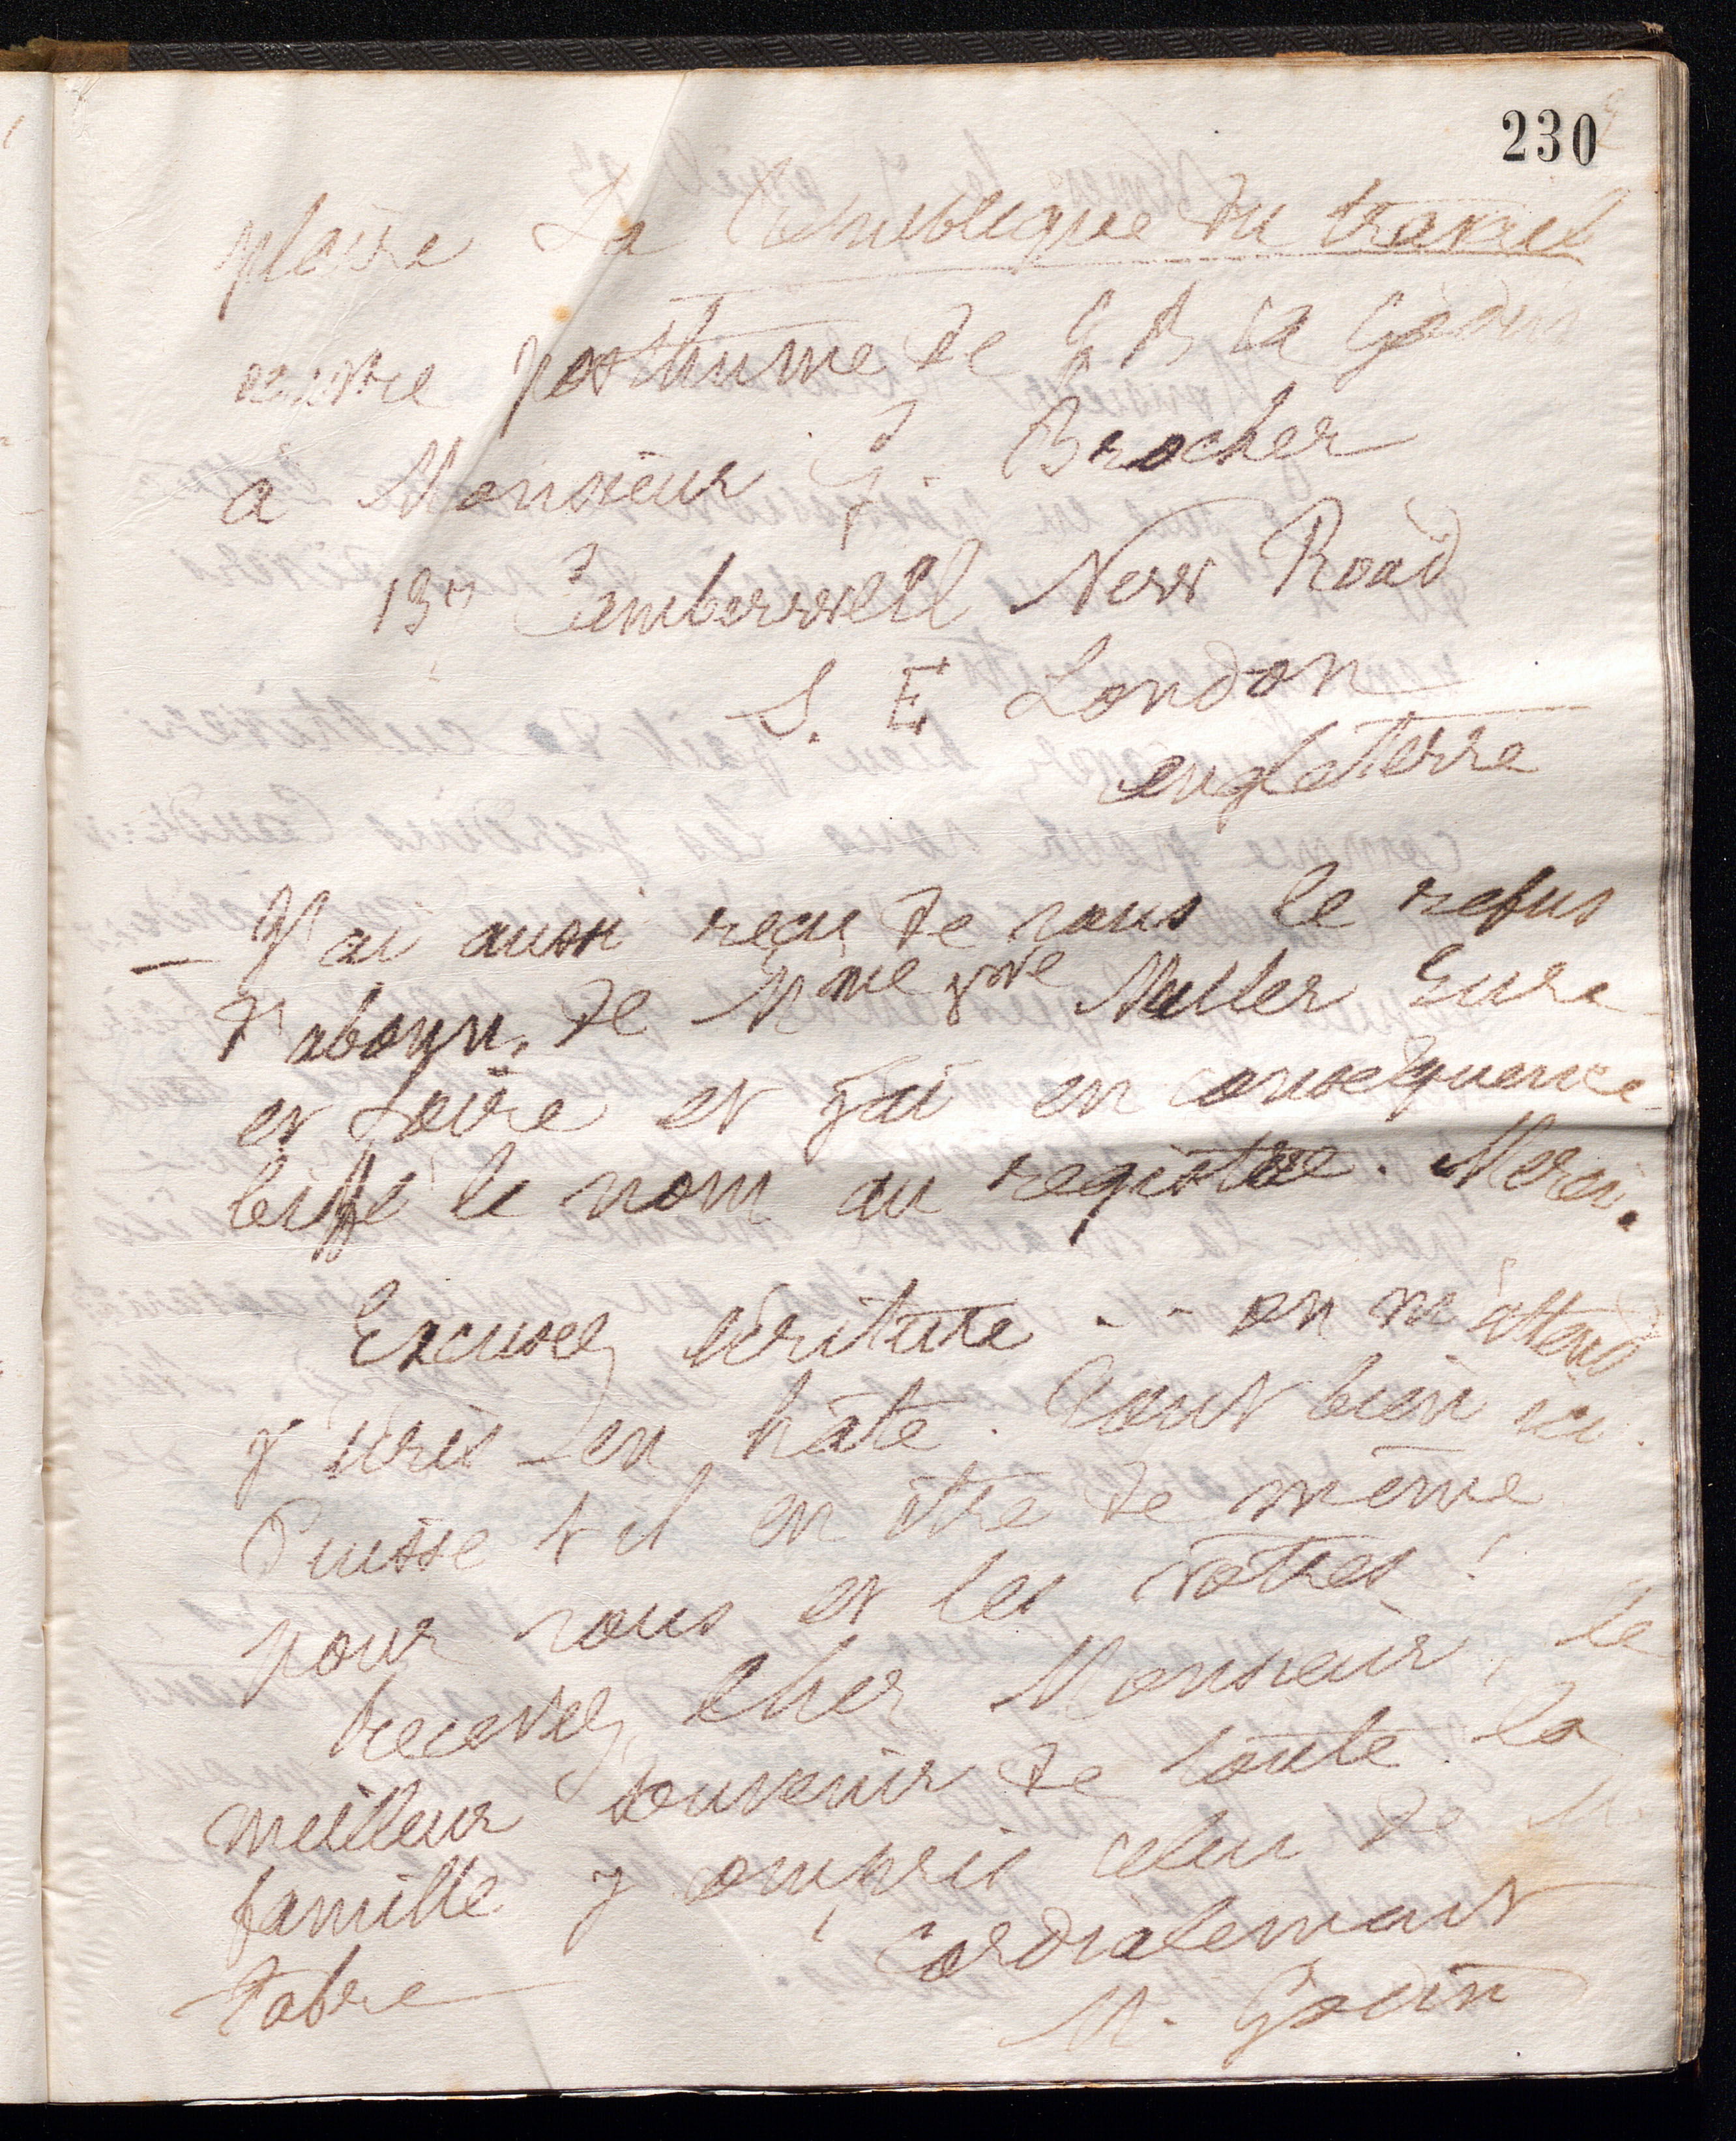 230
plaire La République du travail
œuvre posthume de J Bte A Godin
à Monsieur G. Brocher
Camberwell New Road
S. E London
angleterre
– J'ai aussi reçu de vous le refus
d'abonn. de Mme Vve Muller Eure
et Loire et j'ai en conséquence
biffé le nom au registre. Merci.
Excusez écriture - - on m'attend
j'écris en hâte. Tout bien ici.
Puisse t il en être de même
pour vous et les vôtres !
Recevez, cher Monsieur, le
meilleur souvenir de toute la
famille y compris celui de M.
Fabre
Cordialement
M. Godin